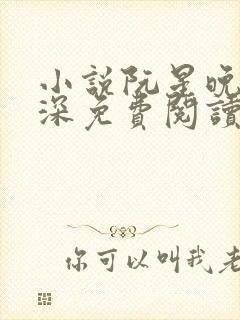 小說阮星晚
深免費閱讀
你可以叫我老